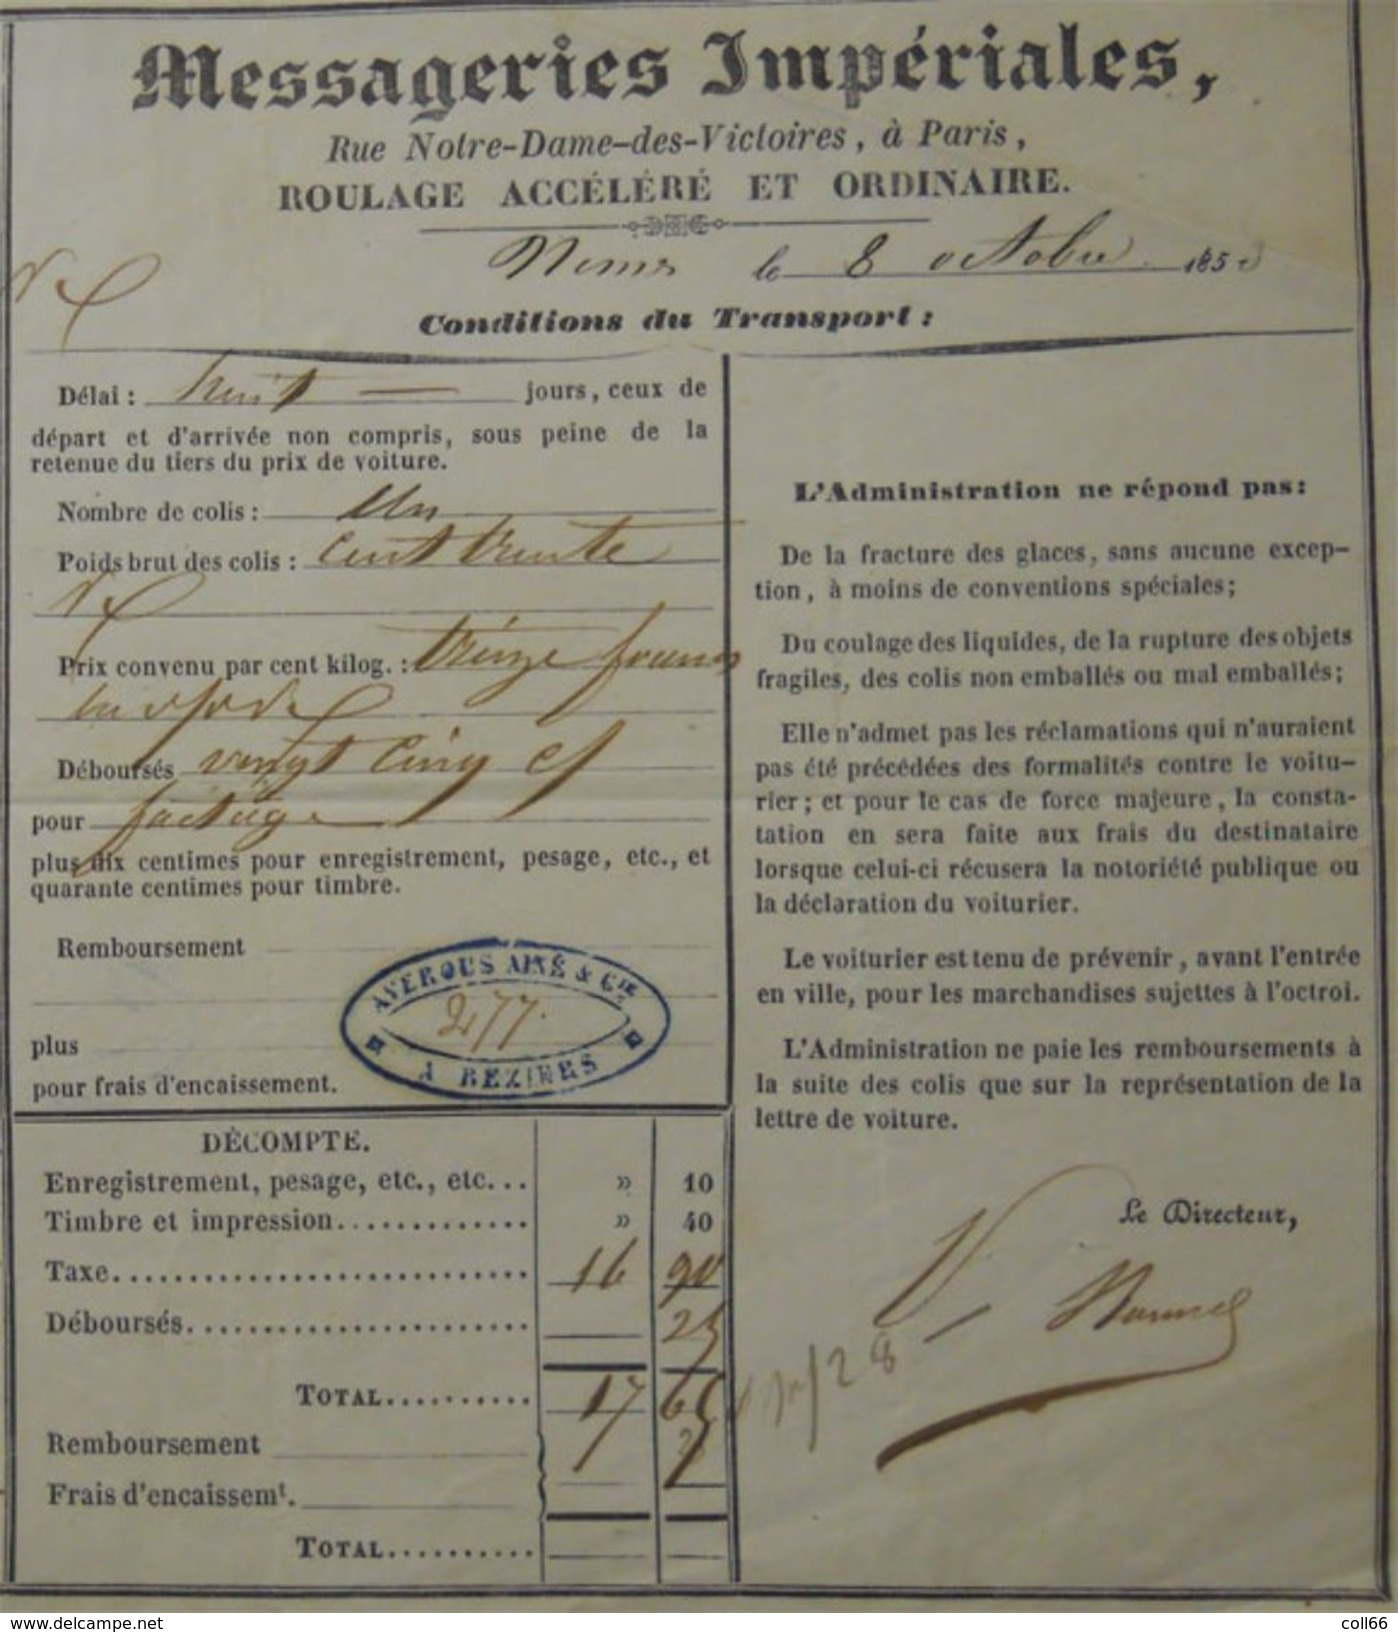 Messageries Impériales,
Rue Notre-Dame-des-Victoires, à Paris,
ROULAGE ACCÉLÉRÉ ET ORDINAIRE.
Nimes le 8 octobre 185
Conditions du Transport :
Délai : huit — jours, ceux de
départ et d'arrivée non compris, sous peine de la
retenue du tiers du prix de voiture.
Nombre de colis : Un
Poids brut des colis : Cent trente
Prix convenu par cent kilog. : treize francs
Déboursés vingt cinq cs
pour factage
plus dix centimes pour enregistrement, pesage, etc., et
quarante centimes pour timbre.
Remboursement
plus
pour frais d'encaissement.
AVEROUS AINÉ & CIE
277.
A BEZIERS
DÉCOMPTE.
Enregistrement, pesage, etc., etc... » 10
Timbre et impression............. » 40
Taxe............................. 16 90
Déboursés........................ 25
TOTAL.......... 17 65
Remboursement
Frais d'encaissemt.
TOTAL..........
L'Administration ne répond pas :
De la fracture des glaces, sans aucune excep-
tion, à moins de conventions spéciales;
Du coulage des liquides, de la rupture des objets
fragiles, des colis non emballés ou mal emballés;
Elle n'admet pas les réclamations qui n'auraient
pas été précédées des formalités contre le voitu-
rier; et pour le cas de force majeure, la consta-
tation en sera faite aux frais du destinataire
lorsque celui-ci récusera la notoriété publique ou
la déclaration du voiturier.
Le voiturier est tenu de prévenir, avant l'entrée
en ville, pour les marchandises sujettes à l'octroi.
L'Administration ne paie les remboursements à
la suite des colis que sur la représentation de la
lettre de voiture.
Le Directeur,
28
www.delcampe.net
coll66